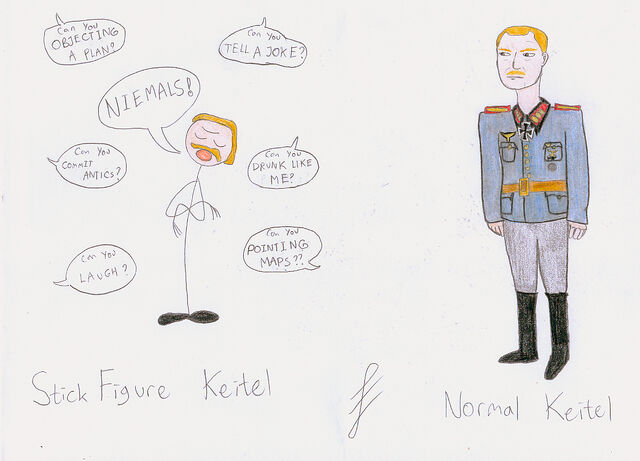 Can You
OBJECTING
A PLAN?
Can You
TELL A JOKE?
NIEMALS!
Can You
COMMIT
ANTICS?
Can You
DRUNK LIKE
ME?
Can You
LAUGH?
Can You
POINTING
MAPS??
Stick Figure Keitel
Normal Keitel